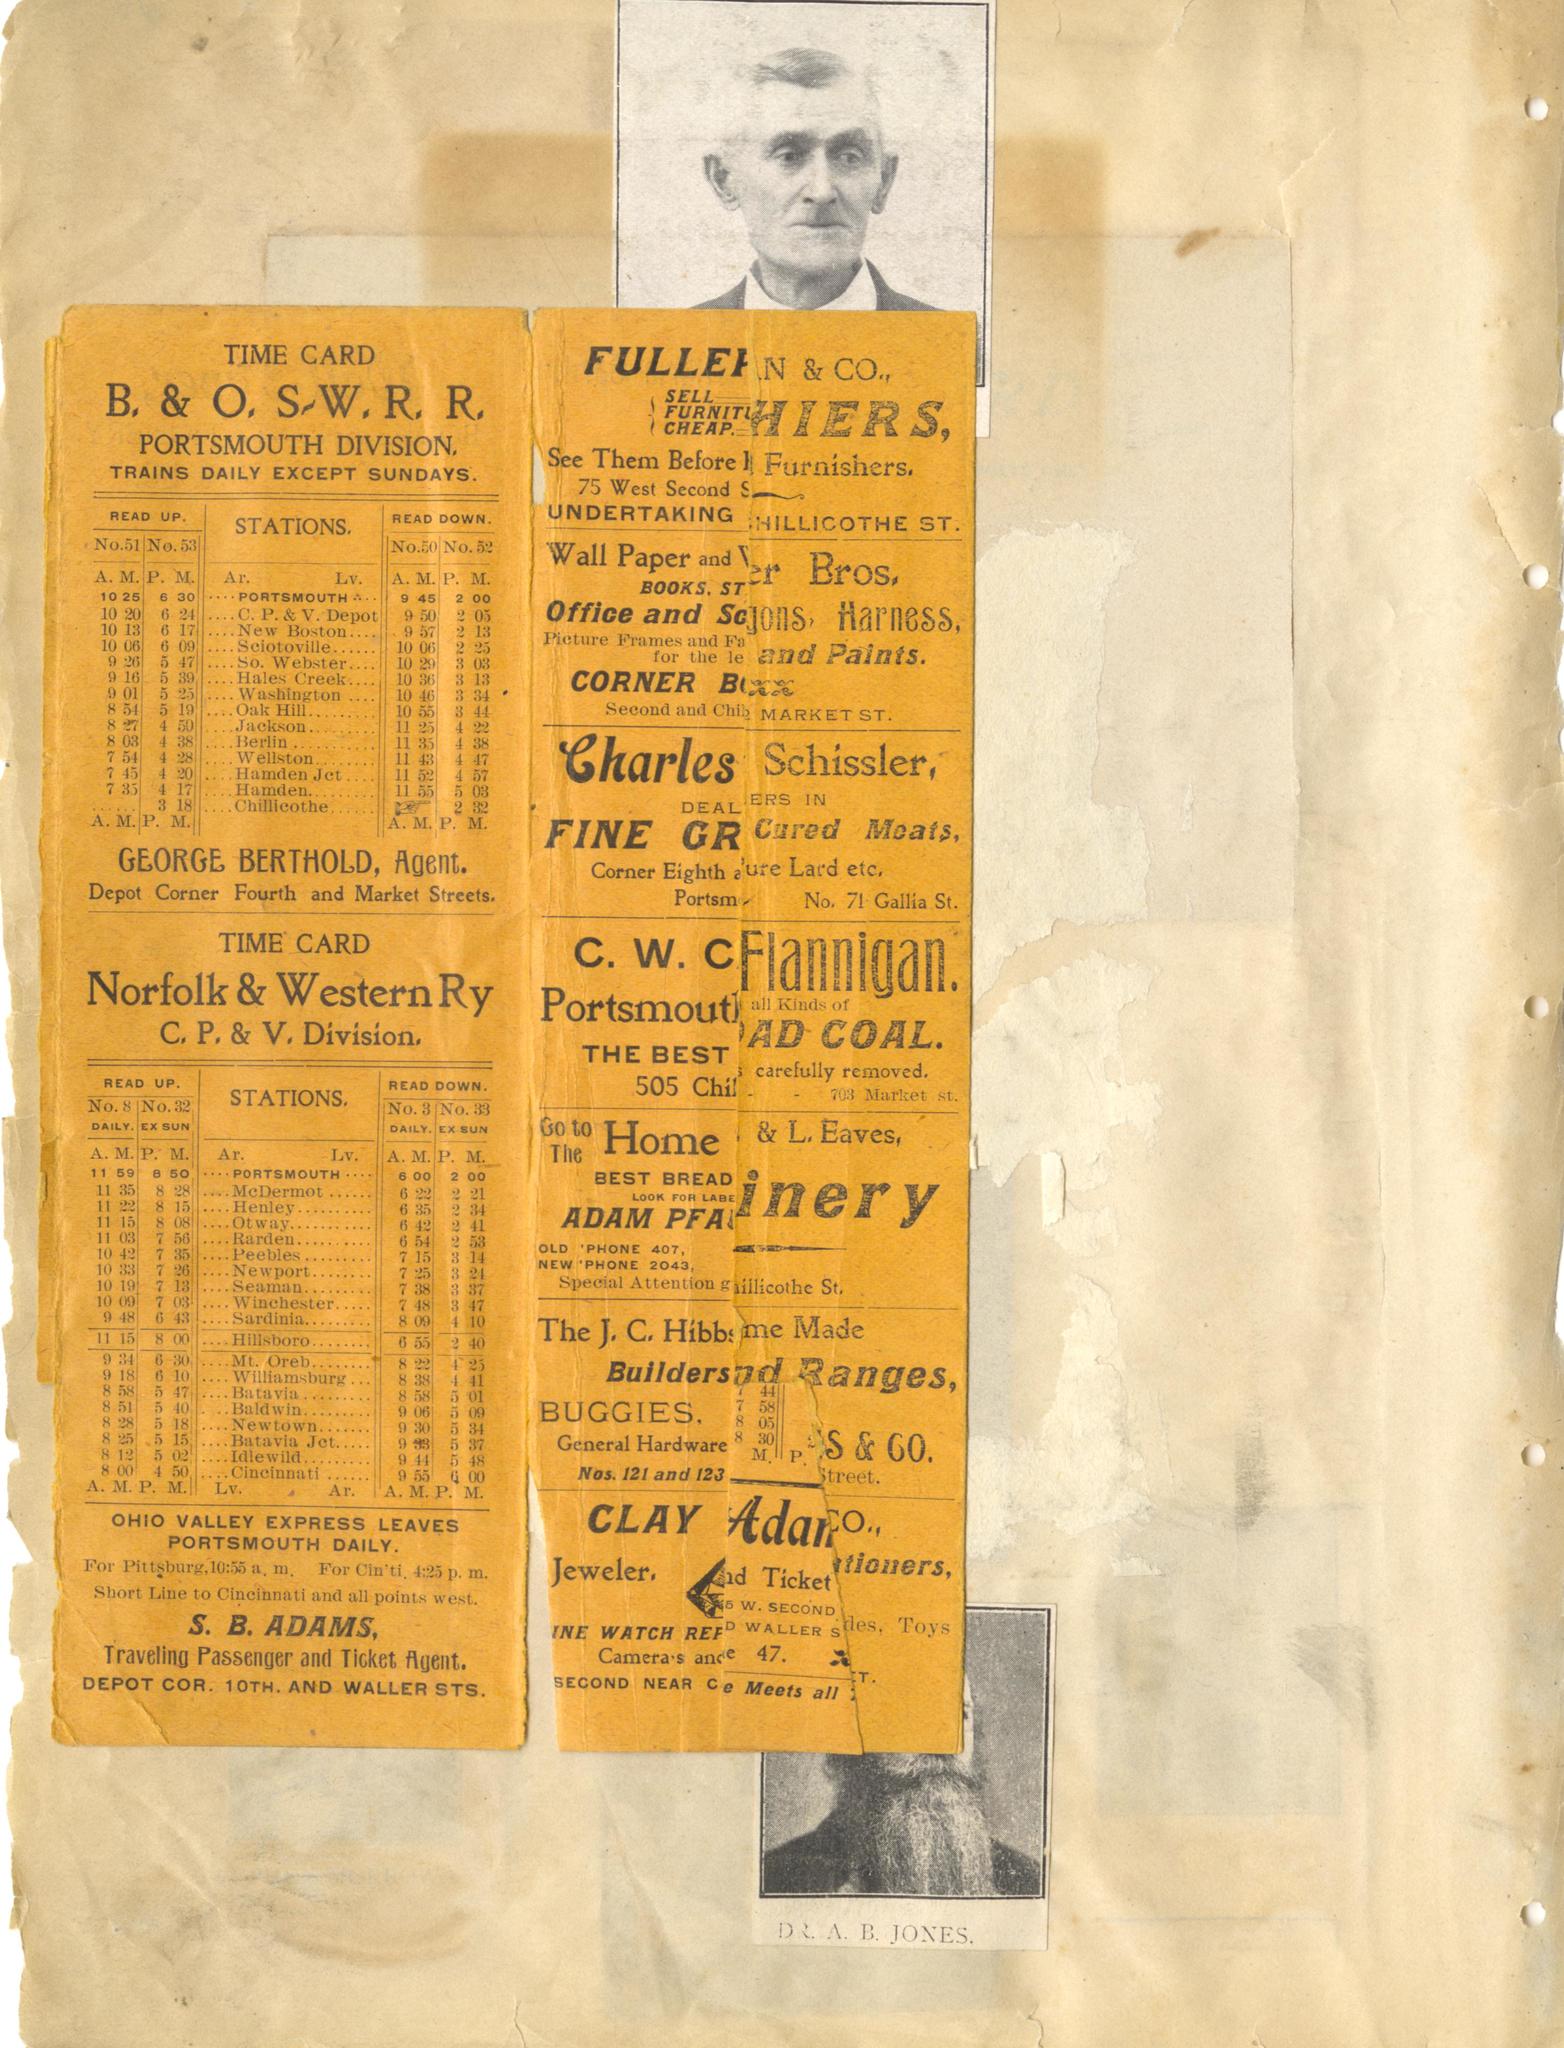 TIME CARD
B. & O. S-W. R. R.
PORTSMOUTH DIVISION.
TRAINS DAILY EXCEPT SUNDAYS.
READ UP. STATIONS. READ DOWN.
No.51 No. 53 No.50 No. 52
A. M. P. M. Ar. Lv. A. M. P. M.
10 25 6 30 ....PORTSMOUTH.... 9 45 2 00
10 20 6 24 ....C. P. & V. Depot 9 50 2 05
10 13 6 17 ....New Boston.... 9 57 2 13
10 06 6 09 ....Sciotoville.... 10 06 2 25
9 26 5 47 ....So. Webster.... 10 29 3 03
9 16 5 39 ....Hales Creek.... 10 36 3 13
9 01 5 25 ....Washington .... 10 46 3 34
8 54 5 19 ....Oak Hill........ 10 55 3 44
8 27 4 50 ....Jackson........ 11 25 4 22
8 03 4 38 ....Berlin.......... 11 35 4 38
7 54 4 28 ....Wellston........ 11 43 4 47
7 45 4 20 ....Hamden Jct .... 11 52 4 57
7 35 4 17 ....Hamden........ 11 55 5 03
...... 3 18 ....Chillicothe...... ☞ 2 32
A. M. P. M. A. M. P. M.
GEORGE BERTHOLD, Agent.
Depot Corner Fourth and Market Streets.
TIME CARD
Norfolk & Western Ry
C. P. & V. Division.
READ UP. STATIONS. READ DOWN.
No. 8 No. 32 No. 3 No. 33
DAILY. EX SUN DAILY. EX SUN
A. M. P. M. Ar. Lv. A. M. P. M.
11 59 8 50 ....PORTSMOUTH .... 6 00 2 00
11 35 8 28 ....McDermot ...... 6 22 2 21
11 22 8 15 ....Henley.......... 6 35 2 34
11 15 8 08 ....Otway.......... 6 42 2 41
11 03 7 56 ....Rarden.......... 6 54 2 53
10 42 7 35 ....Peebles.......... 7 15 3 14
10 33 7 26 ....Newport........ 7 25 3 24
10 19 7 13 ....Seaman.......... 7 38 3 37
10 09 7 03 ....Winchester...... 7 48 3 47
9 48 6 43 ....Sardinia........ 8 09 4 10
11 15 8 00 ....Hillsboro........ 6 55 2 40
9 34 6 30 ....Mt. Oreb........ 8 22 4 25
9 18 6 10 ....Williamsburg... 8 38 4 41
8 58 5 47 ....Batavia.......... 8 58 5 01
8 51 5 40 ....Baldwin........ 9 06 5 09
8 28 5 18 ....Newtown........ 9 30 5 34
8 25 5 15 ....Batavia Jct..... 9 33 5 37
8 12 5 02 ....Idlewild........ 9 44 5 48
8 00 4 50 ....Cincinnati ...... 9 55 6 00
A. M. P. M. Lv. Ar. A. M. P. M.
OHIO VALLEY EXPRESS LEAVES
PORTSMOUTH DAILY.
For Pittsburg, 10:55 a. m. For Cin'ti, 4:25 p. m.
Short Line to Cincinnati and all points west.
S. B. ADAMS,
Traveling Passenger and Ticket Agent.
DEPOT COR. 10TH. AND WALLER STS.
FULLER
SELL
FURNITU
CHEAP.
See Them Before
75 West Second S
UNDERTAKING
Wall Paper and
BOOKS, ST
Office and Sc
Picture Frames and Fa
for the le
CORNER BO
Second and Chil
Charles
DEAL
FINE GR
Corner Eighth a
Portsm
C. W. C
Portsmouth
THE BEST
505 Chil
Go to The Home
BEST BREAD
LOOK FOR LABE
ADAM PFAU
OLD 'PHONE 407,
NEW 'PHONE 2043,
Special Attention g
The J. C. Hibbs
Builders
BUGGIES.
General Hardware
Nos. 121 and 123
CLAY
Jeweler.
INE WATCH REP
Camera's and
SECOND NEAR C
N & CO.,
HIERS,
Furnishers.
HILLICOTHE ST.
er Bros.
gons, Harness,
and Paints.
MARKET ST.
Schissler,
ERS IN
Cured Meats,
ure Lard etc.
No. 71 Gallia St.
Flannigan.
all Kinds of
OAD COAL.
s carefully removed.
- - 703 Market st.
& L. Eaves,
inery
hillicothe St.
me Made
nd Ranges,
7 44
7 58
8 05
8 30
M. P.
SS & CO.
Street.
Adam
nd Ticket
5 W. SECOND
D WALLER S
e 47.
e Meets all
CO.,
tioners,
des, Toys
ET.
DR. A. B. JONES.